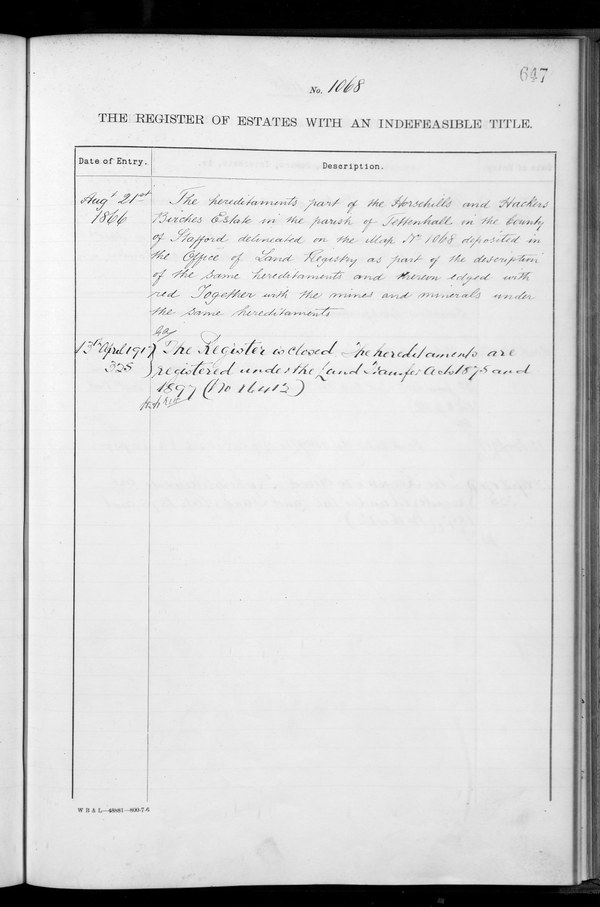 647
No. 1068
THE REGISTER OF ESTATES WITH AN INDEFEASIBLE TITLE.
Date of Entry.
Description.
Augt 21st
1866
The hereditaments part of the Horsehills and Hackers
Birches Estate in the parish of Tettenhall in the County
of Stafford delineated on the Map No 1068 deposited in
the Office of Land Registry as part of the description
of the same hereditaments and thereon edged with
red Together with the mines and minerals under
the same hereditaments
13th April 1917
328
The Register is closed The hereditaments are
registered under the Land Transfer Acts 1875 and
1897 (No 16413)
W B & L—48881—800-7-6